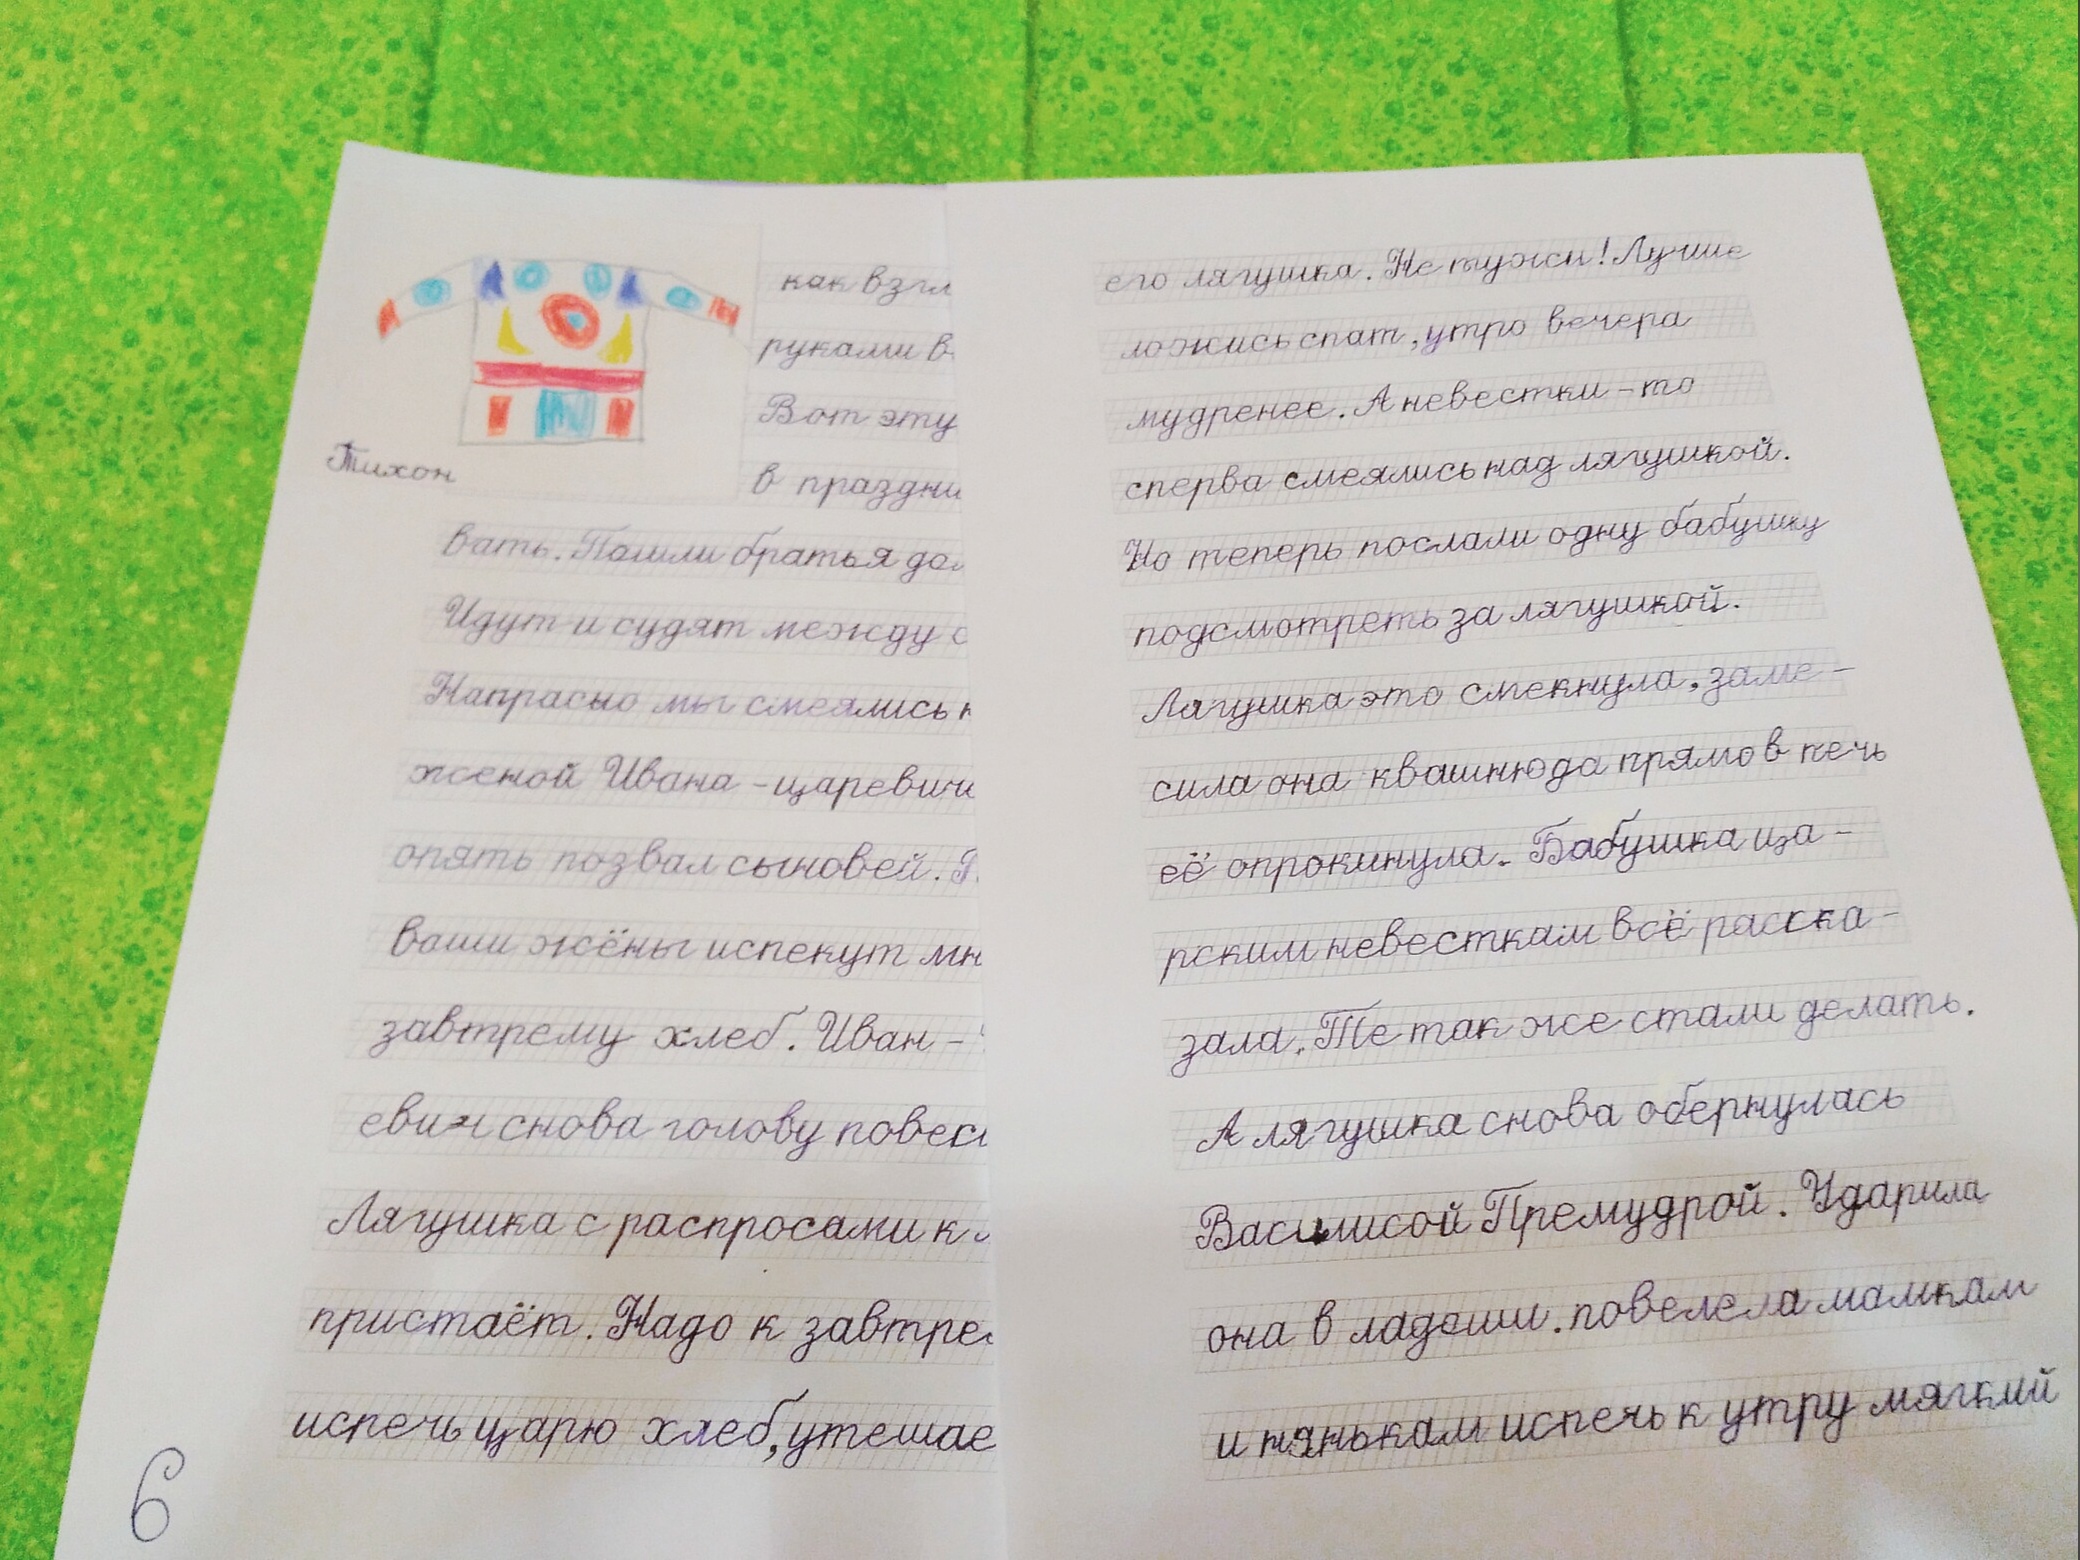 как взгл
руками в
Вот эту
Тихон
в праздни
вать. Пошли братья до
Идут и судят между с
Напрасно мы смеялись н
женой Ивана-царевич
опять позвал сыновей.
ваши жёны испекут мн
завтрему хлеб. Иван-
евич снова голову повес
Лягушка с распросами к
пристаёт. Надо к завтре
испечь царю хлеб, утешае
6
его лягушка. Не тужи! Лучше
ложись спат, утро вечера
мудренее. А невестки-то
сперва смеялись над лягушкой.
Но теперь послали одну бабушку
подсмотреть за лягушкой.
Лягушка это смекнула, заме-
сила она квашню да прямо в печь
её опрокинула. Бабушка ца-
рским невесткам всё расска-
зала. Те так же стали делать.
А лягушка снова обернулась
Василисой Премудрой. Ударила
она в ладоши. повелела мамкам
и нянькам испечь к утру мягкий